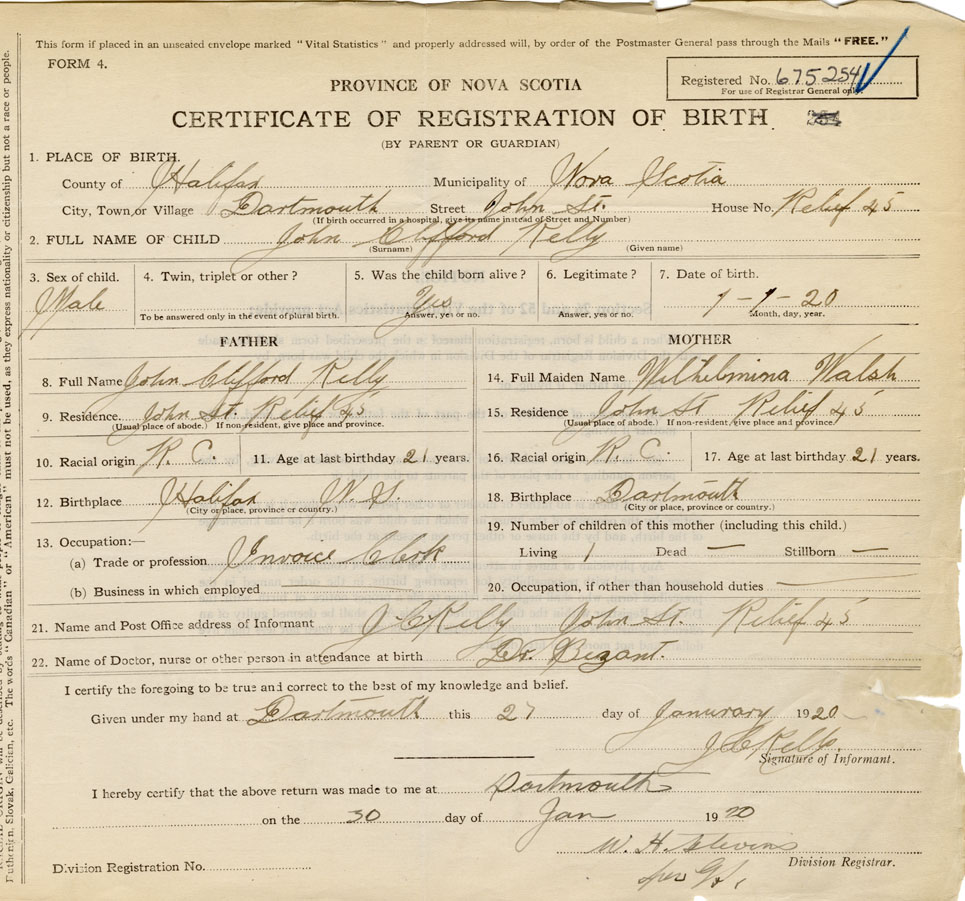 This form if placed in an unsealed envelope marked "Vital Statistics" and properly addressed will, by order of the Postmaster General pass through the Mails "FREE."
FORM 4.
Registered No. 675254
For use of Registrar General only.
PROVINCE OF NOVA SCOTIA
CERTIFICATE OF REGISTRATION OF BIRTH
(BY PARENT OR GUARDIAN)
1. PLACE OF BIRTH.
County of Halifax Municipality of Nova Scotia
City, Town, or Village Dartmouth Street John St. House No. Relief 45
(If birth occurred in a hospital, give its name instead of Street and Number)
2. FULL NAME OF CHILD John Clifford Kelly
(Surname) (Given name)
3. Sex of child. 4. Twin, triplet or other? 5. Was the child born alive? 6. Legitimate? 7. Date of birth.
Male Yes 1-1-20
To be answered only in the event of plural birth. Answer, yes or no. Answer, yes or no. Month, day, year.
FATHER
8. Full Name John Clifford Kelly
9. Residence. John St. Relief 45
(Usual place of abode.) If non-resident, give place and province.
10. Racial origin R. C. 11. Age at last birthday 21 years.
12. Birthplace Halifax N. S.
(City or place, province or country.)
13. Occupation:—
(a) Trade or profession Invoice Clerk
(b) Business in which employed
MOTHER
14. Full Maiden Name Wilhelmina Walsh
15. Residence John St Relief 45
(Usual place of abode.) If non-resident, give place and province.
16. Racial origin R. C. 17. Age at last birthday 21 years.
18. Birthplace Dartmouth
(City or place, province or country.)
19. Number of children of this mother (including this child.)
Living 1 Dead — Stillborn —
20. Occupation, if other than household duties —
21. Name and Post Office address of Informant J C Kelly John St. Relief 45
22. Name of Doctor, nurse or other person in attendance at birth Dr. Bezant.
I certify the foregoing to be true and correct to the best of my knowledge and belief.
Given under my hand at Dartmouth this 27 day of Janurary 1920
J C Kelly.
Signature of Informant.
I hereby certify that the above return was made to me at Dartmouth
on the 30 day of Jan 1920
W. H. Stevens
Division Registrar.
per
Division Registration No.
must not be used, as they express nationality or citizenship but not a race or people.
Ruthenian, Slovak, Galician, etc. The words "Canadian" or "American"